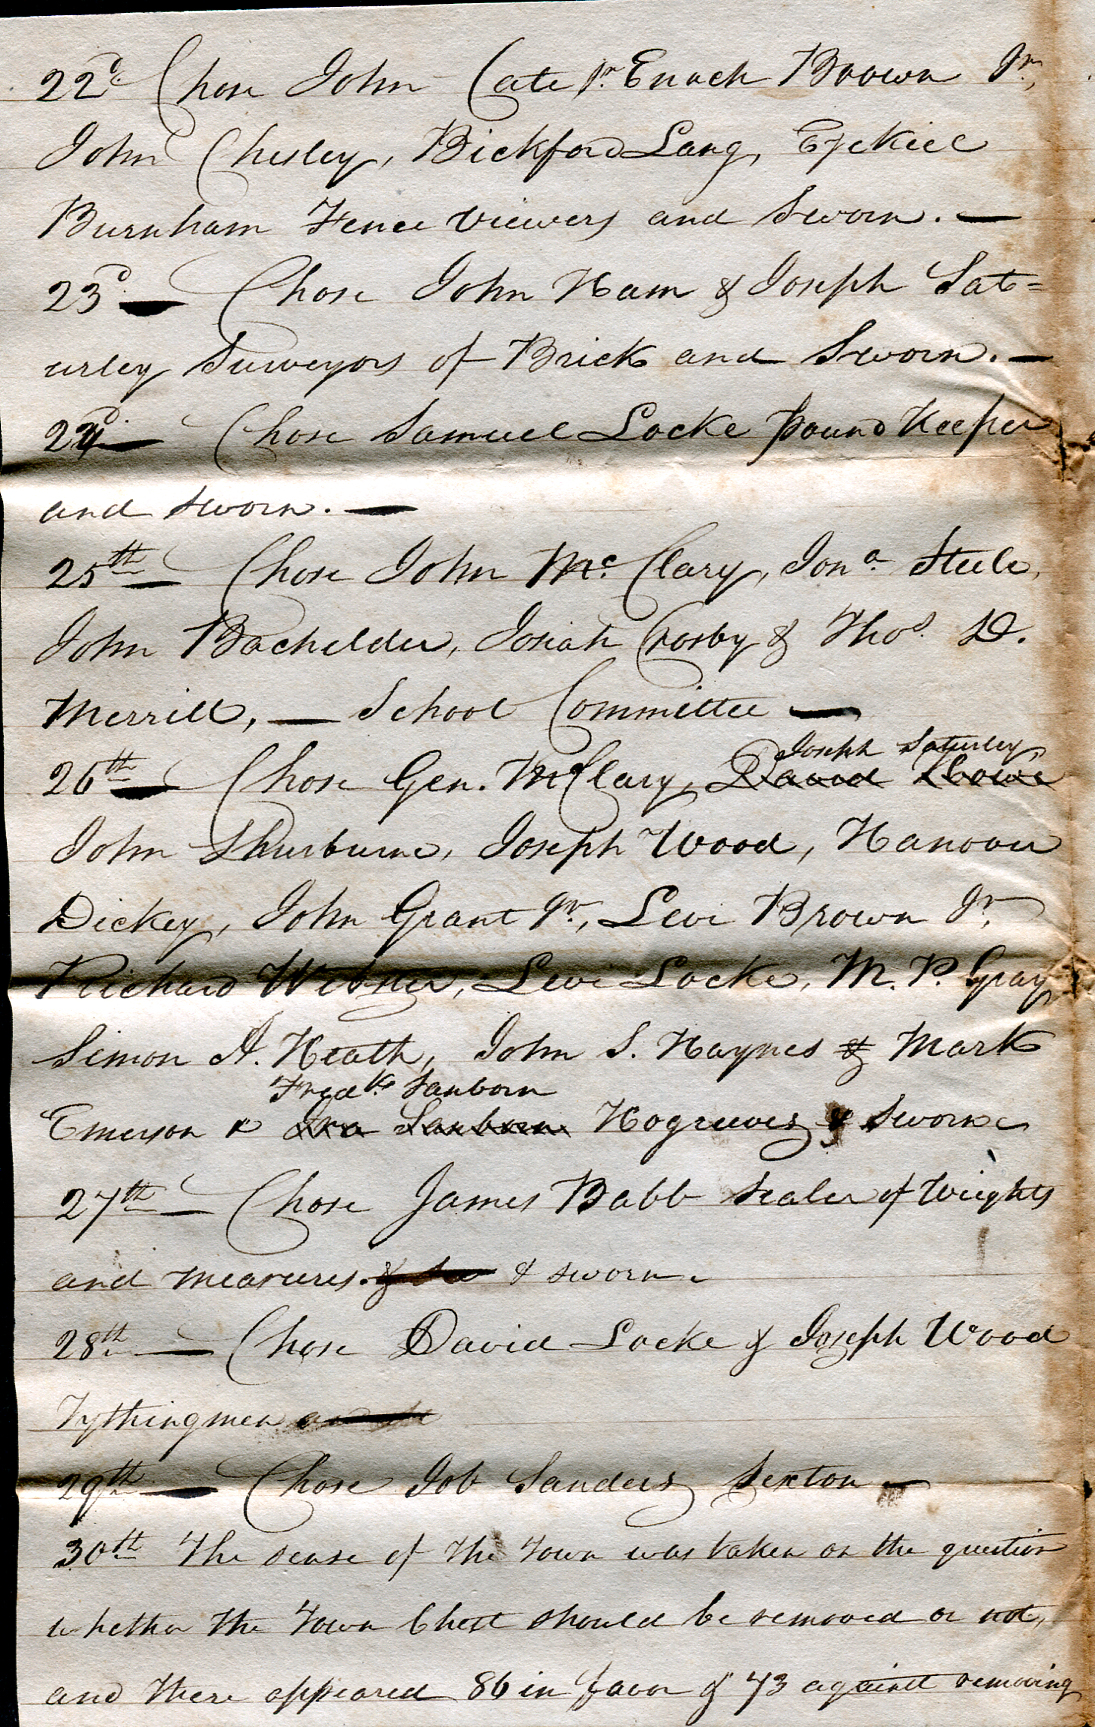 22d Chose John Cate Jr. Enoch Brown Jr,
John Chesley, Bickford Lang, Ezekiel
Burnham Fence Viewers and Sworn. —
23d — Chose John Ham & Joseph Sat=
urley Surveyors of Brick and Sworn. —
24 — Chose Samuel Locke Pound Keeper
and sworn. —
25th — Chose John Mc. Clary, Jona. Steele,
John Bachelder, Josiah Crosby & Thos. D.
Merrill, — School Committee —
Joseph Saturley,
26th — Chose Gen. McClary, David
John Shurburne, Joseph Wood, Hanover
Dickey, John Grant Jr, Levi Brown Jr.
Richard Webster, Levi Locke, M. P. Gray
Simon A. Heath, John S. Haynes & Mark
Fredk. Sanborn
Emerson Ira Sanborn Hogreeves & Sworn
27th — Chose James Babb Sealer of Weights
and measures. & sworn.
28th — Chose David Locke & Joseph Wood
Tythingmen
29th — Chose Job Sanders Sexton —
30th The sense of the Town was taken on the question
whether the Town Chest should be removed or not,
and there appeared 86 in favor & 73 against removing